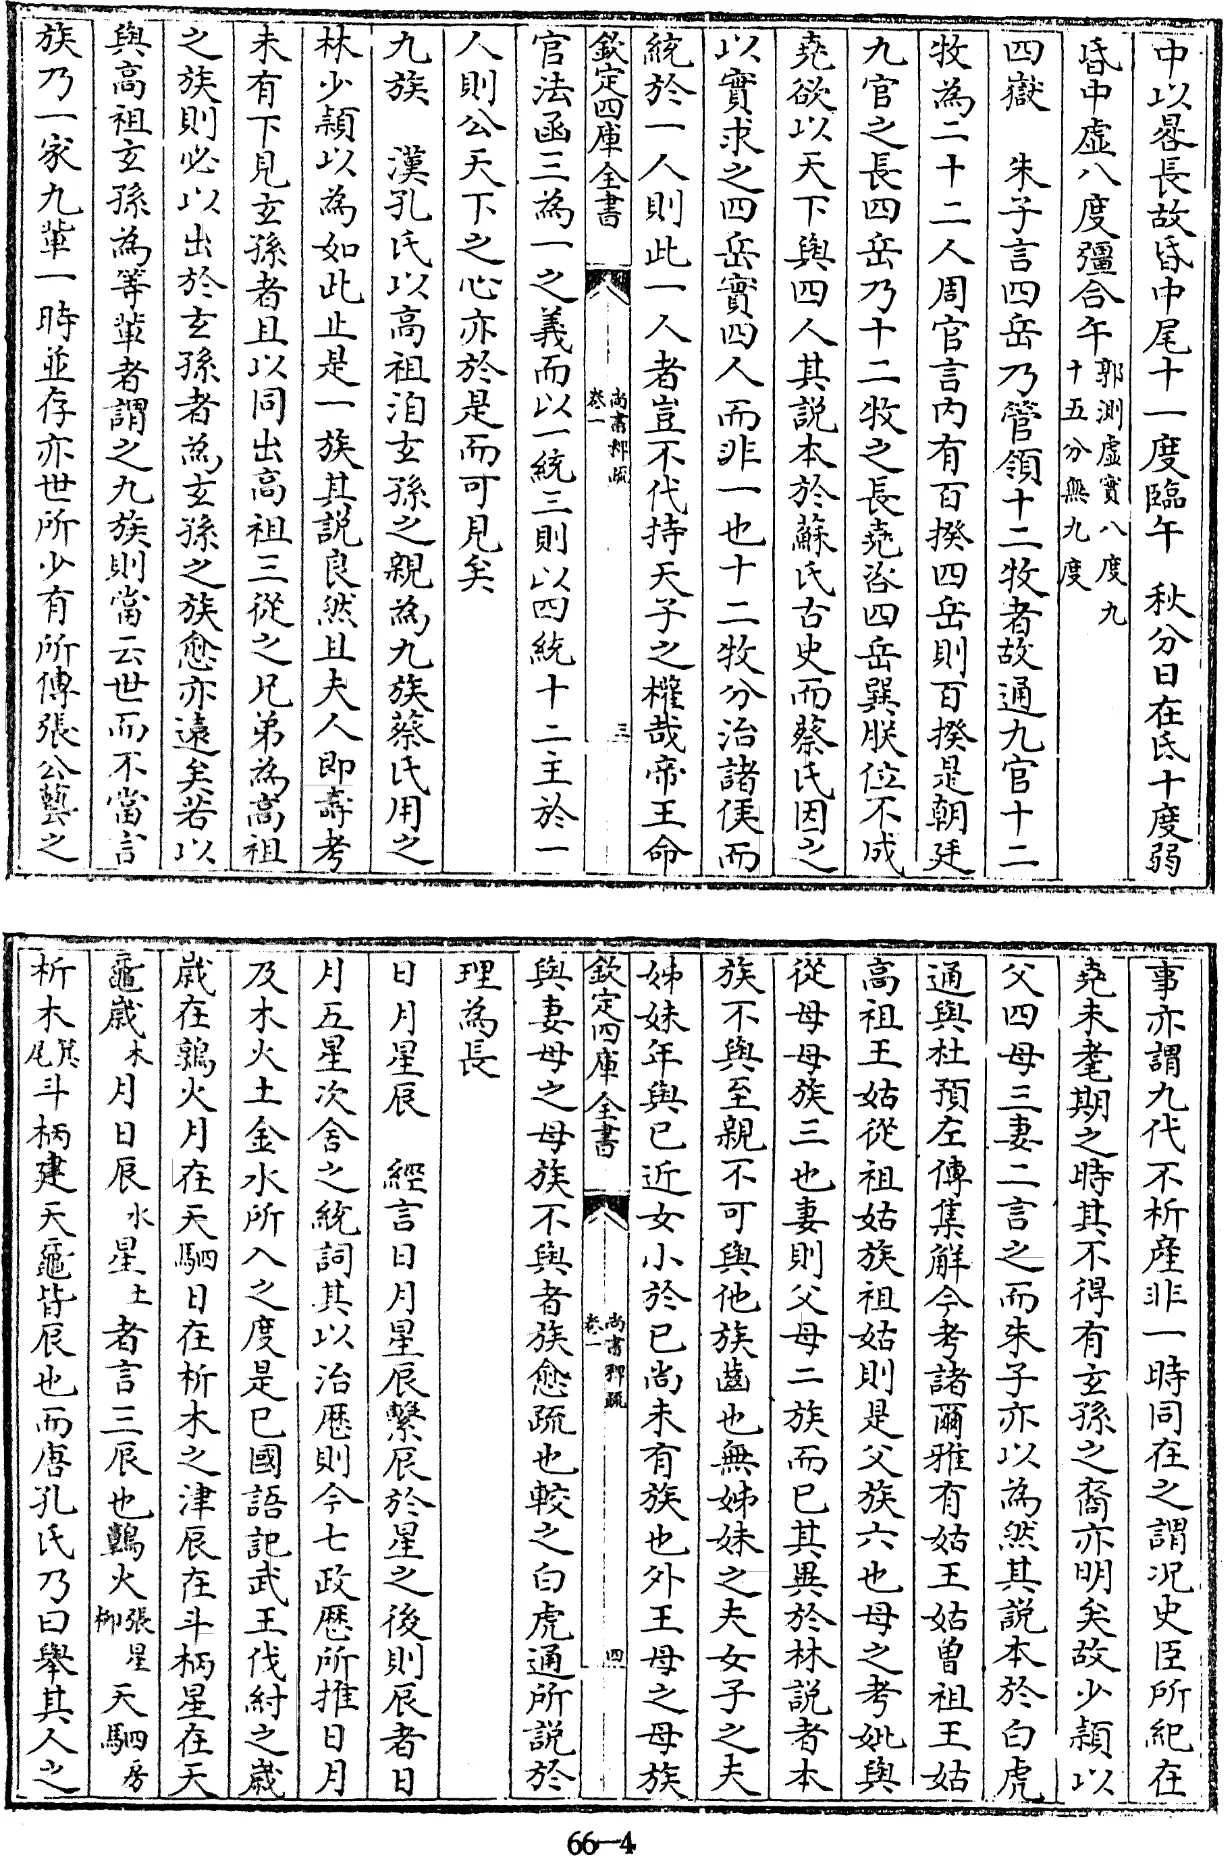 中以晷長故昏中尾十一度臨午　秋分日在氐十度弱
昏中虛八度彊合午郭測虛實八度九十五分無九度
四嶽　朱子言四岳乃管領十二牧者故通九官十二
牧為二十二人周官言内有百揆四岳則百揆是朝廷
九官之長四岳乃十二牧之長堯咨四岳巽朕位不成
堯欲以天下與四人其說本於蘇氏古史而蔡氏因之
以實求之四岳實四人而非一也十二牧分治諸侯而
統於一人則此一人者豈不代持天子之權哉帝王命
欽定四庫全書
尚書稗疏
卷一
三
官法函三為一之義而以一統三則以四統十二主於一
人則公天下之心亦於是而可見矣
九族　漢孔氏以高祖洎玄孫之親為九族蔡氏用之
林少穎以為如此止是一族其說良然且夫人即壽考
未有下見玄孫者且以同出高祖三從之兄弟為高祖
之族則必以出於玄孫者為玄孫之族愈亦遠矣若以
與高祖玄孫為等輩者謂之九族則當云世而不當言
族乃一家九輩一時並存亦世所少有所傳張公藝之
事亦謂九代不析產非一時同在之謂况史臣所紀在
堯未耄期之時其不得有玄孫之裔亦明矣故少穎以
父四母三妻二言之而朱子亦以為然其說本於白虎
通與杜預左傳集解今考諸爾雅有姑王姑曾祖王姑
高祖王姑從祖姑族祖姑則是父族六也母之考妣與
從母母族三也妻則父母二族而已其異於林說者本
族不與至親不可與他族齒也無姊妹之夫女子之夫
姊妹年與已近女小於已尚未有族也外王母之母族
欽定四庫全書
尚書稗疏
卷一
四
與妻母之母族不與者族愈疏也較之白虎通所說於
理為長
日月星辰　經言日月星辰繫辰於星之後則辰者日
月五星次舍之統詞其以治歷則今七政歷所推日月
及木火土金水所入之度是已國語記武王伐紂之歲
歲在鶉火月在天駟日在析木之津辰在斗柄星在天
黿歲木月日辰水星土者言三辰也鶉火張星柳天駟房
析木箕尾斗柄建天黿皆辰也而唐孔氏乃曰舉其人之
66—4